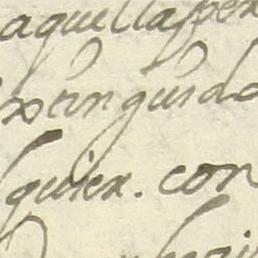 aquella per
extinguido
quier. con